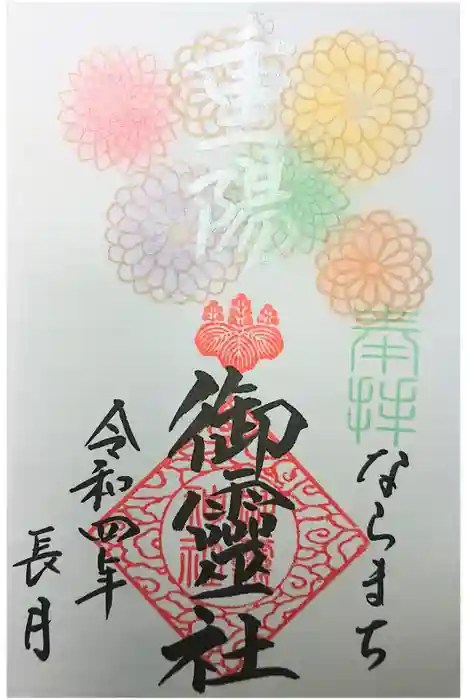 重陽
奉拝
ならまち
御靈社
令和四年
長月